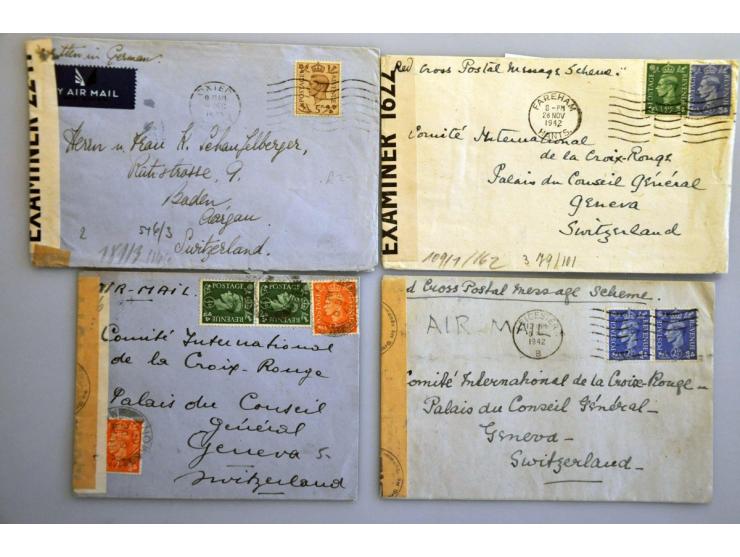 written in German.
BY AIR MAIL
EXAMINER 22
POSTAGE
REVENUE
Herrn u. Frau H. Schaufelberger,
Rütistrasse, 9.
Baden,
Aargau.
Switzerland.
546/3
2
EXAMINER 1622
"Red Cross Postal Message Scheme"
FAREHAM
8-PM
28 NOV
1942
HANTS.
POSTAGE
REVENUE
Comité International
de la Croix-Rouge
Palais du Conseil Général
Geneva
Switzerland
109/1/162
3 79/101
AIR-MAIL.
POSTAGE
REVENUE
POSTAGE
REVENUE
Comité International
de la Croix-Rouge
Palais du Conseil
Général
Geneva
Switzerland
d Cross Postal Message Scheme.
AIR MAIL
LEICESTER
1942
B
POSTAGE
REVENUE
Comité International de la Croix-Rouge-
Palais du Conseil Général-
Geneva-
Switzerland-